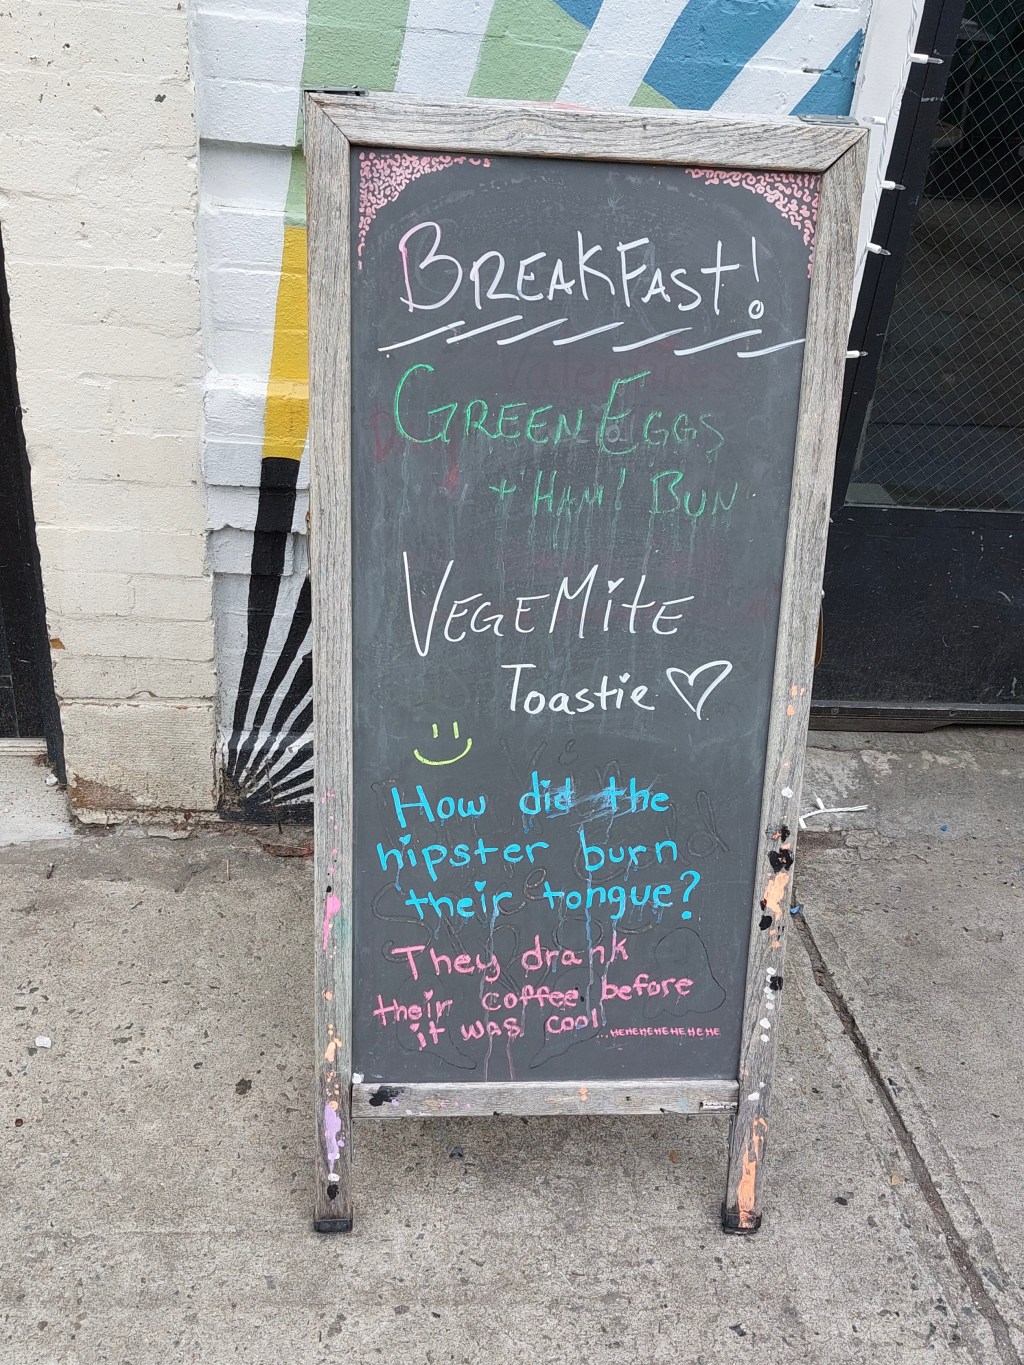 BREAKFAST!
GREEN EGGS
+ HAM! BUN
VEGEMITE
Toastie
How did the
hipster burn
their tongue?
They drank
their coffee before
it was cool
...HEHEHEHEHEHEHE